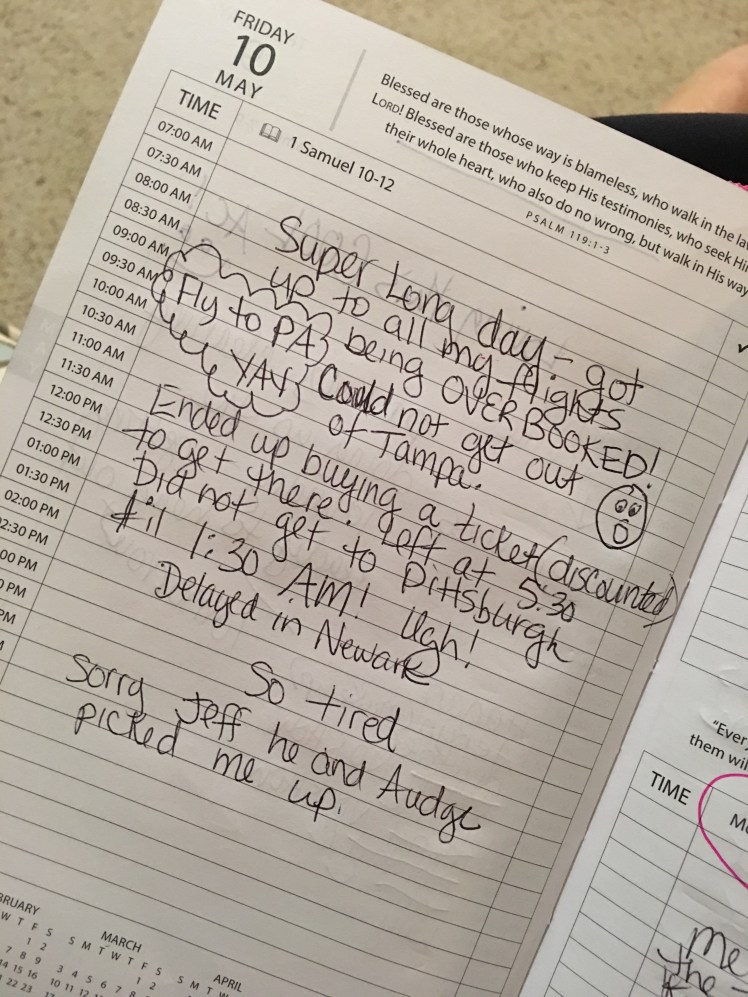 FRIDAY
10
MAY
Blessed are those whose way is blameless, who walk in the
LORD! Blessed are those who keep His testimonies, who seek
their whole heart, who also do no wrong, but walk in His
PSALM 119:1-3
TIME
1 Samuel 10-12
07:00 AM
07:30 AM
08:00 AM
08:30 AM
09:00 AM
09:30 AM
10:00 AM
10:30 AM
11:00 AM
11:30 AM
12:00 PM
12:30 PM
01:00 PM
01:30 PM
02:00 PM
2:30 PM
00 PM
PM
PM
Super Long day - got
up to all my flights
being OVERBOOKED!
Fly to PA
YAY
Could not get out
of Tampa.
Ended up buying a ticket (discounted)
to get there. Left at 5:30
Did not get to Pittsburgh
til 1:30 AM! Ugh!
Delayed in Newark
So tired
Sorry Jeff he and Audge
picked me up.
BRUARY
W T F S
1 2
7 8 9
14 15 16
22 23
MARCH
S M T W T F S
1 2
3 4 5 6 7 8
10 11 12
APRIL
S M T W
"Ever
them wil
TIME
me
the